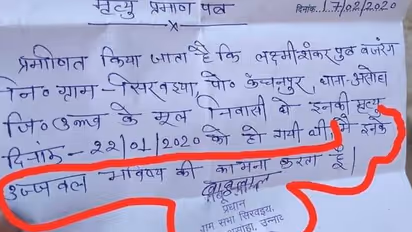 मृत्यु प्रमाण पत्र
दिनांक...17/02/2020
प्रमाणित किया जाता है कि लक्ष्मीशंकर पुत्र बजरंग
नि० ग्राम - सिरवइया, पो० कंचनपुर, थाना-असोहा
जि० उन्नाव के मूल निवासी थे इनकी मृत्यु
दिनांक - 22/01/2020 को हो गयी थी। मैं इनके
उज्जवल भविष्य की कामना करता हूँ।
प्रधान
ग्राम सभा सिरवइया,
असोहा, उन्नाव